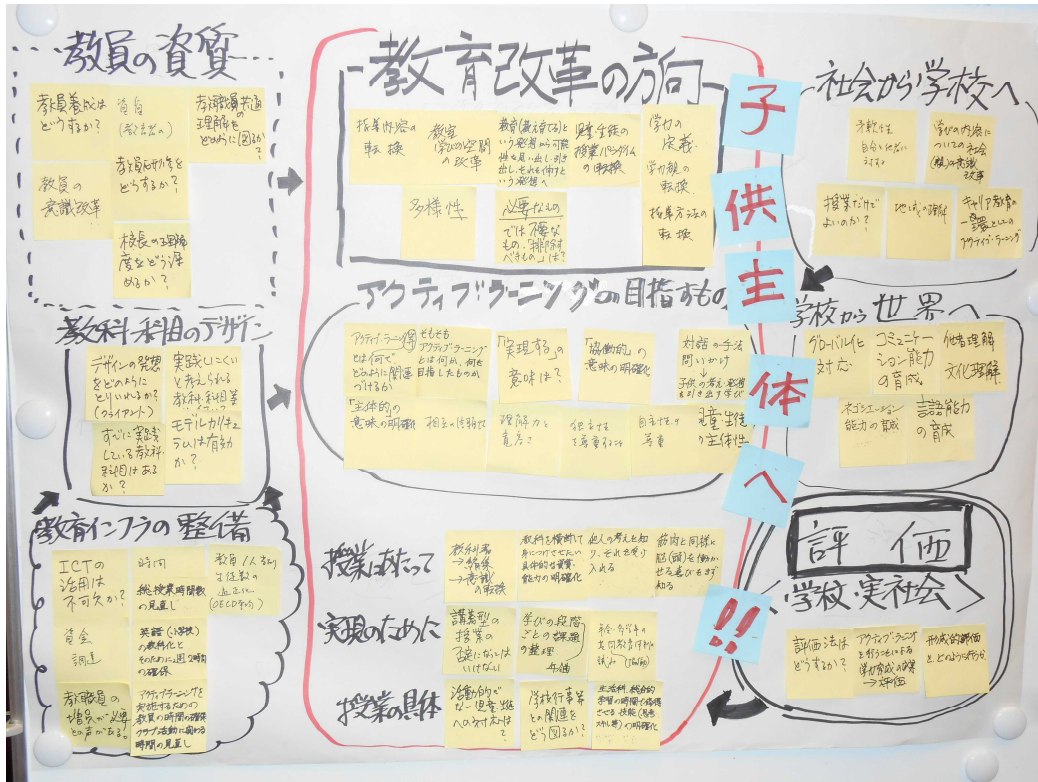 教員の資質
教員養成は
どうするか?
資質
教職員共通
の
理解を
どのように図るか?
教員の
意識改革
教員研修を
どうするか?
校長の理解
度をどう深
めるか?
教科・科目のデザイン
デザインの発想
をどのように
とりいれるか?
(クライアント)
実践しにくい
と考えられる
教科・科目等
すでに実践
している教科
科目はある
か?
モデルカリキュ
ラムは有効
か?
教育インフラの整備
ICTの
活用は
不可欠か?
時間
総授業時間数
の見直し
教員1人あたり
生徒数の
適正化
(OECD平均)
資金
調達
英語(小学校)
の教科化と
そのために週2時間
の確保
教職員の
増員が必要
との声がある。
アクティブラーニングを
実施するための
教員の時間の確保
クラブ活動に関わる
時間の見直し
教育改革の方向
指導内容の
転換
教室
学びの空間
の改革
教育(教え育てる)と
いう発想から可能
性を見い出し、引き
出し、それを伸すと
いう発想へ
児童・生徒の
授業パラダイム
の転換
学力の
定義
学力観の
転換
指導方法の
転換
多様性
必要なもの
では「不要な
もの」「排除す
べきもの」は?
アクティブ・ラーニングの目指すもの
アクティブ・ラーニング
とは何で
どのように関連
づけるか
そもそも
アクティブラーニング
とは何か、何を
目指したものか
「実現する」の
意味は?
「協働的」の
意味の明確化
対話の手法
問いかけ
↓
子供の考え・発想
を引き出す学び
「主体的」の
意味の明確化
理解力を
独自性
を尊重すること
自主性の
尊重
児童・生徒
の主体性
授業にあたって
教科書
の転換
教科を横断して
身につけさせたい
具体的な資質・
能力の明確化
他人の考えを知
り、それを受け
入れる
筋肉と同様に
脳(頭)を働か
せる喜びもまず
知る
実現のために
講義型の
授業の
否定になっては
いけない
学びの段階
ごとの課題
の整理
評価
授業の具体
活動的で
ない児童・生徒
への対応は
?
学校行事等
との関連を
どう図るか?
生活科、総合的
学習の時間で習得
させる技能(思考
スキル等)の明確化
子供主体へ!!
社会から学校へ
学びの内容に
ついての社会
(親)の意識
改革
授業だけで
よいのか?
地域の理解
キャリア教育の
一環としての
アクティブ・ラーニング
学校から世界へ
グローバル化
対応
コミュニケー
ション能力
の育成
他者理解
文化理解
ネゴシエーション
能力の育成
言語能力
の育成
評価
学校・実社会
評価法は
どうするか?
アクティブ・ラーニング
を行うことによる
学力育成の効果
→評価
形成的評価
を、どのように行うか